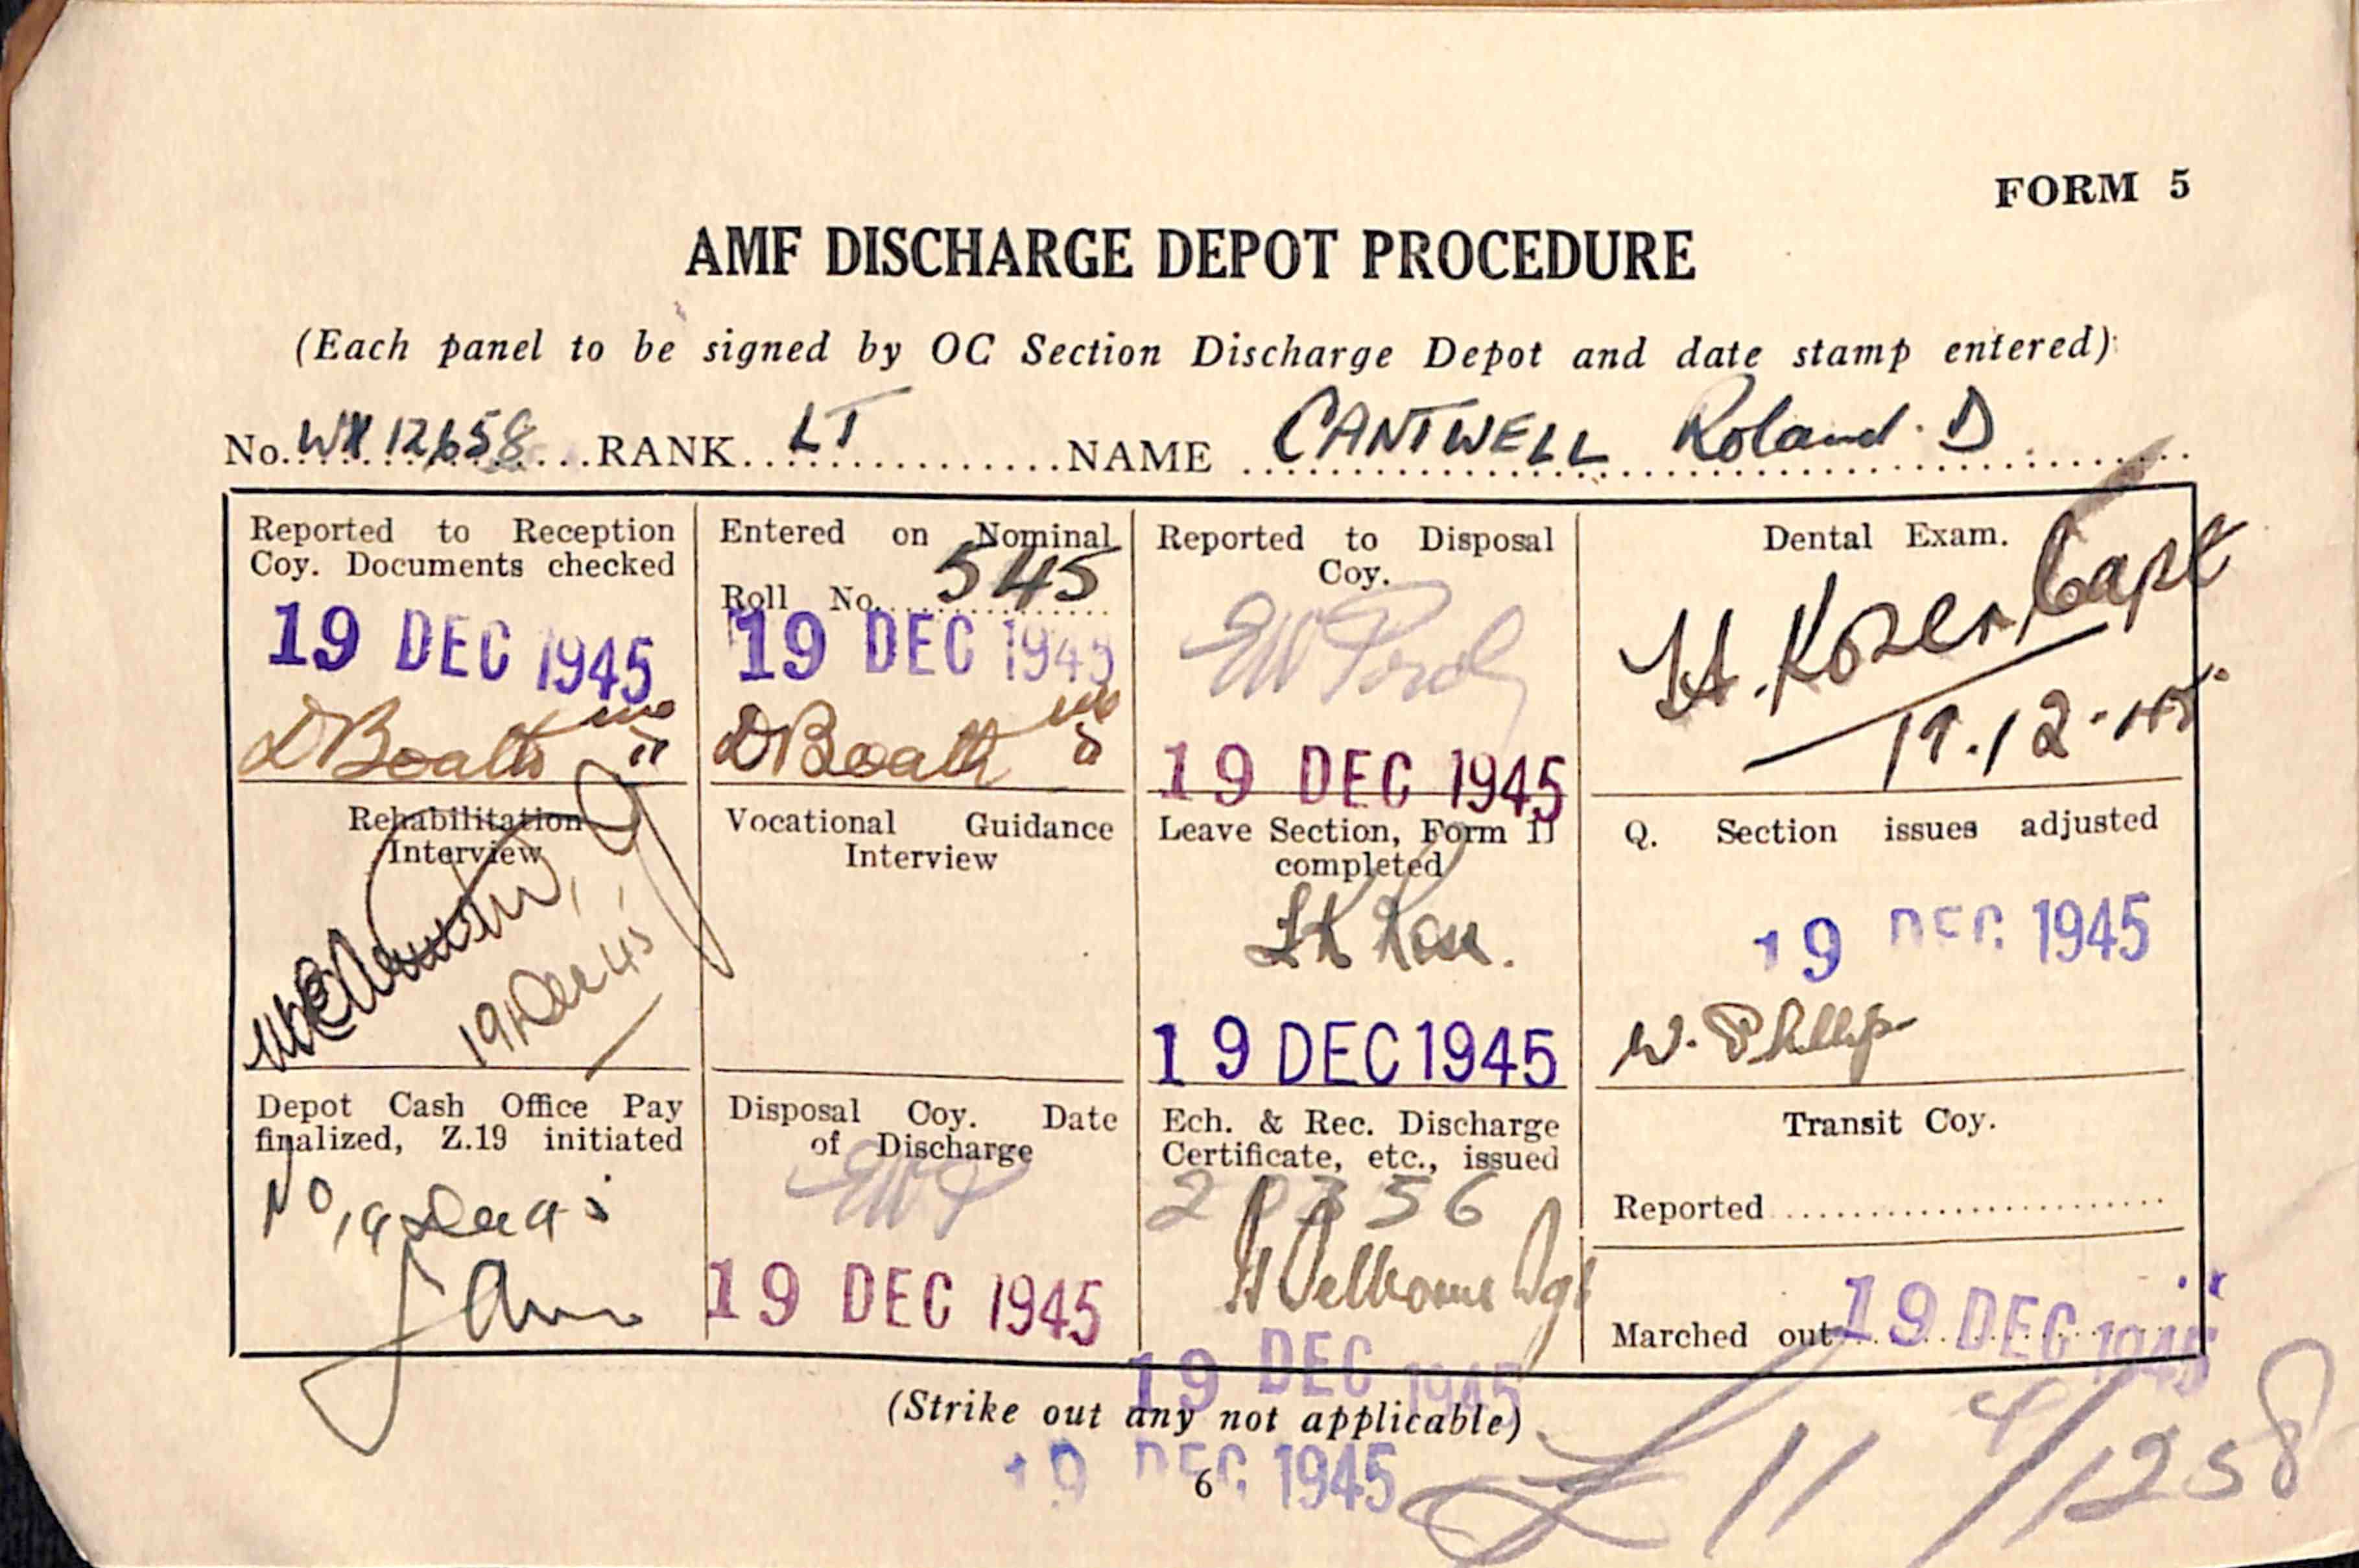 FORM 5
AMF DISCHARGE DEPOT PROCEDURE
(Each panel to be signed by OC Section Discharge Depot and date stamp entered)
No. WX 12658 RANK LT NAME CANTWELL Roland. D
Reported to Reception
Coy. Documents checked
19 DEC 1945
Entered on Nominal
Roll No. 545
19 DEC 1945
Reported to Disposal
Coy.
19 DEC 1945
Dental Exam.
Capt
19.12.45
Rehabilitation
Interview
19 Dec 45
Vocational Guidance
Interview
Leave Section, Form 11
completed
19 DEC 1945
Q. Section issues adjusted
19 DEC 1945
W. Phillip
Depot Cash Office Pay
finalized, Z.19 initiated
No
Disposal Coy. Date
of Discharge
19 DEC 1945
Ech. & Rec. Discharge
Certificate, etc., issued
20356
19 DEC 1945
Transit Coy.
Reported
Marched out 19 DEC 1945
(Strike out any not applicable)
19 DEC 1945
6